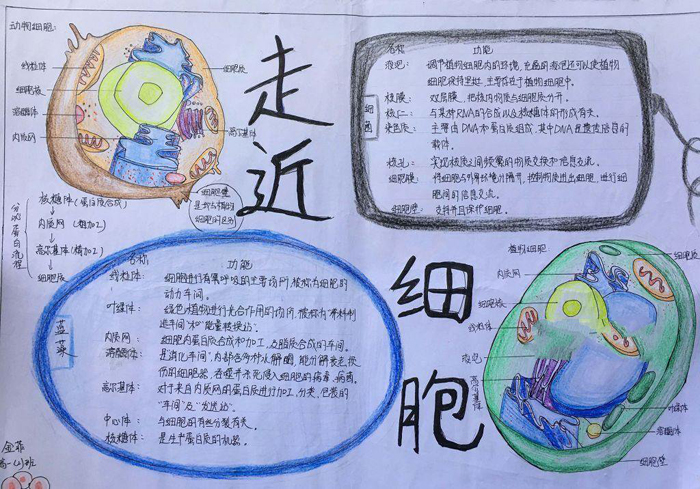 动物细胞:
线粒体
细胞核
溶酶体
内质网
细胞膜
高尔基体
核糖体(蛋白质合成)
内质网(粗加工)
高尔基体(精加工)
细胞膜
分泌蛋白流程
细胞壁
是动与植的
细胞间区别
走近
细胞
细菌
名称 功能
液泡: 调节植物细胞内的环境,充盈的液泡还可以使植物
细胞保持坚挺,主要存在于植物细胞中。
核膜: 双层膜,把核内物质与细胞质分开。
核仁: 与某种RNA的合成以及核糖体的形成有关。
染色质: 主要由DNA和蛋白质组成,其中DNA是遗传信息的
载体。
核孔: 实现核质之间频繁的物质交换和信息交流。
细胞膜: 将细胞与外界环境分隔开,控制物质进出细胞,进行细
胞间的信息交流。
细胞壁: 支持并且保护细胞。
蓝藻
名称 功能
线粒体: 细胞进行有氧呼吸的主要场所,被称为细胞的
动力车间。
叶绿体: 绿色植物进行光合作用的场所,被称为"养料制
造车间"和"能量转换站"。
内质网: 细胞内蛋白质合成和加工,及脂质合成的车间。
溶酶体: 是"消化车间",内部含多种水解酶,能分解衰老、损
伤的细胞器,吞噬并杀死侵入细胞的病毒、病菌。
高尔基体: 对于来自内质网的蛋白质进行加工,分类,包装的
"车间"及"发送站"。
中心体: 与细胞的有丝分裂有关。
核糖体: 是生产蛋白质的机器。
植物细胞:
内质网
细胞核
线粒体
液泡
高尔基体
细胞膜
叶绿体
溶酶体
细胞壁
金菲
高一(2)班